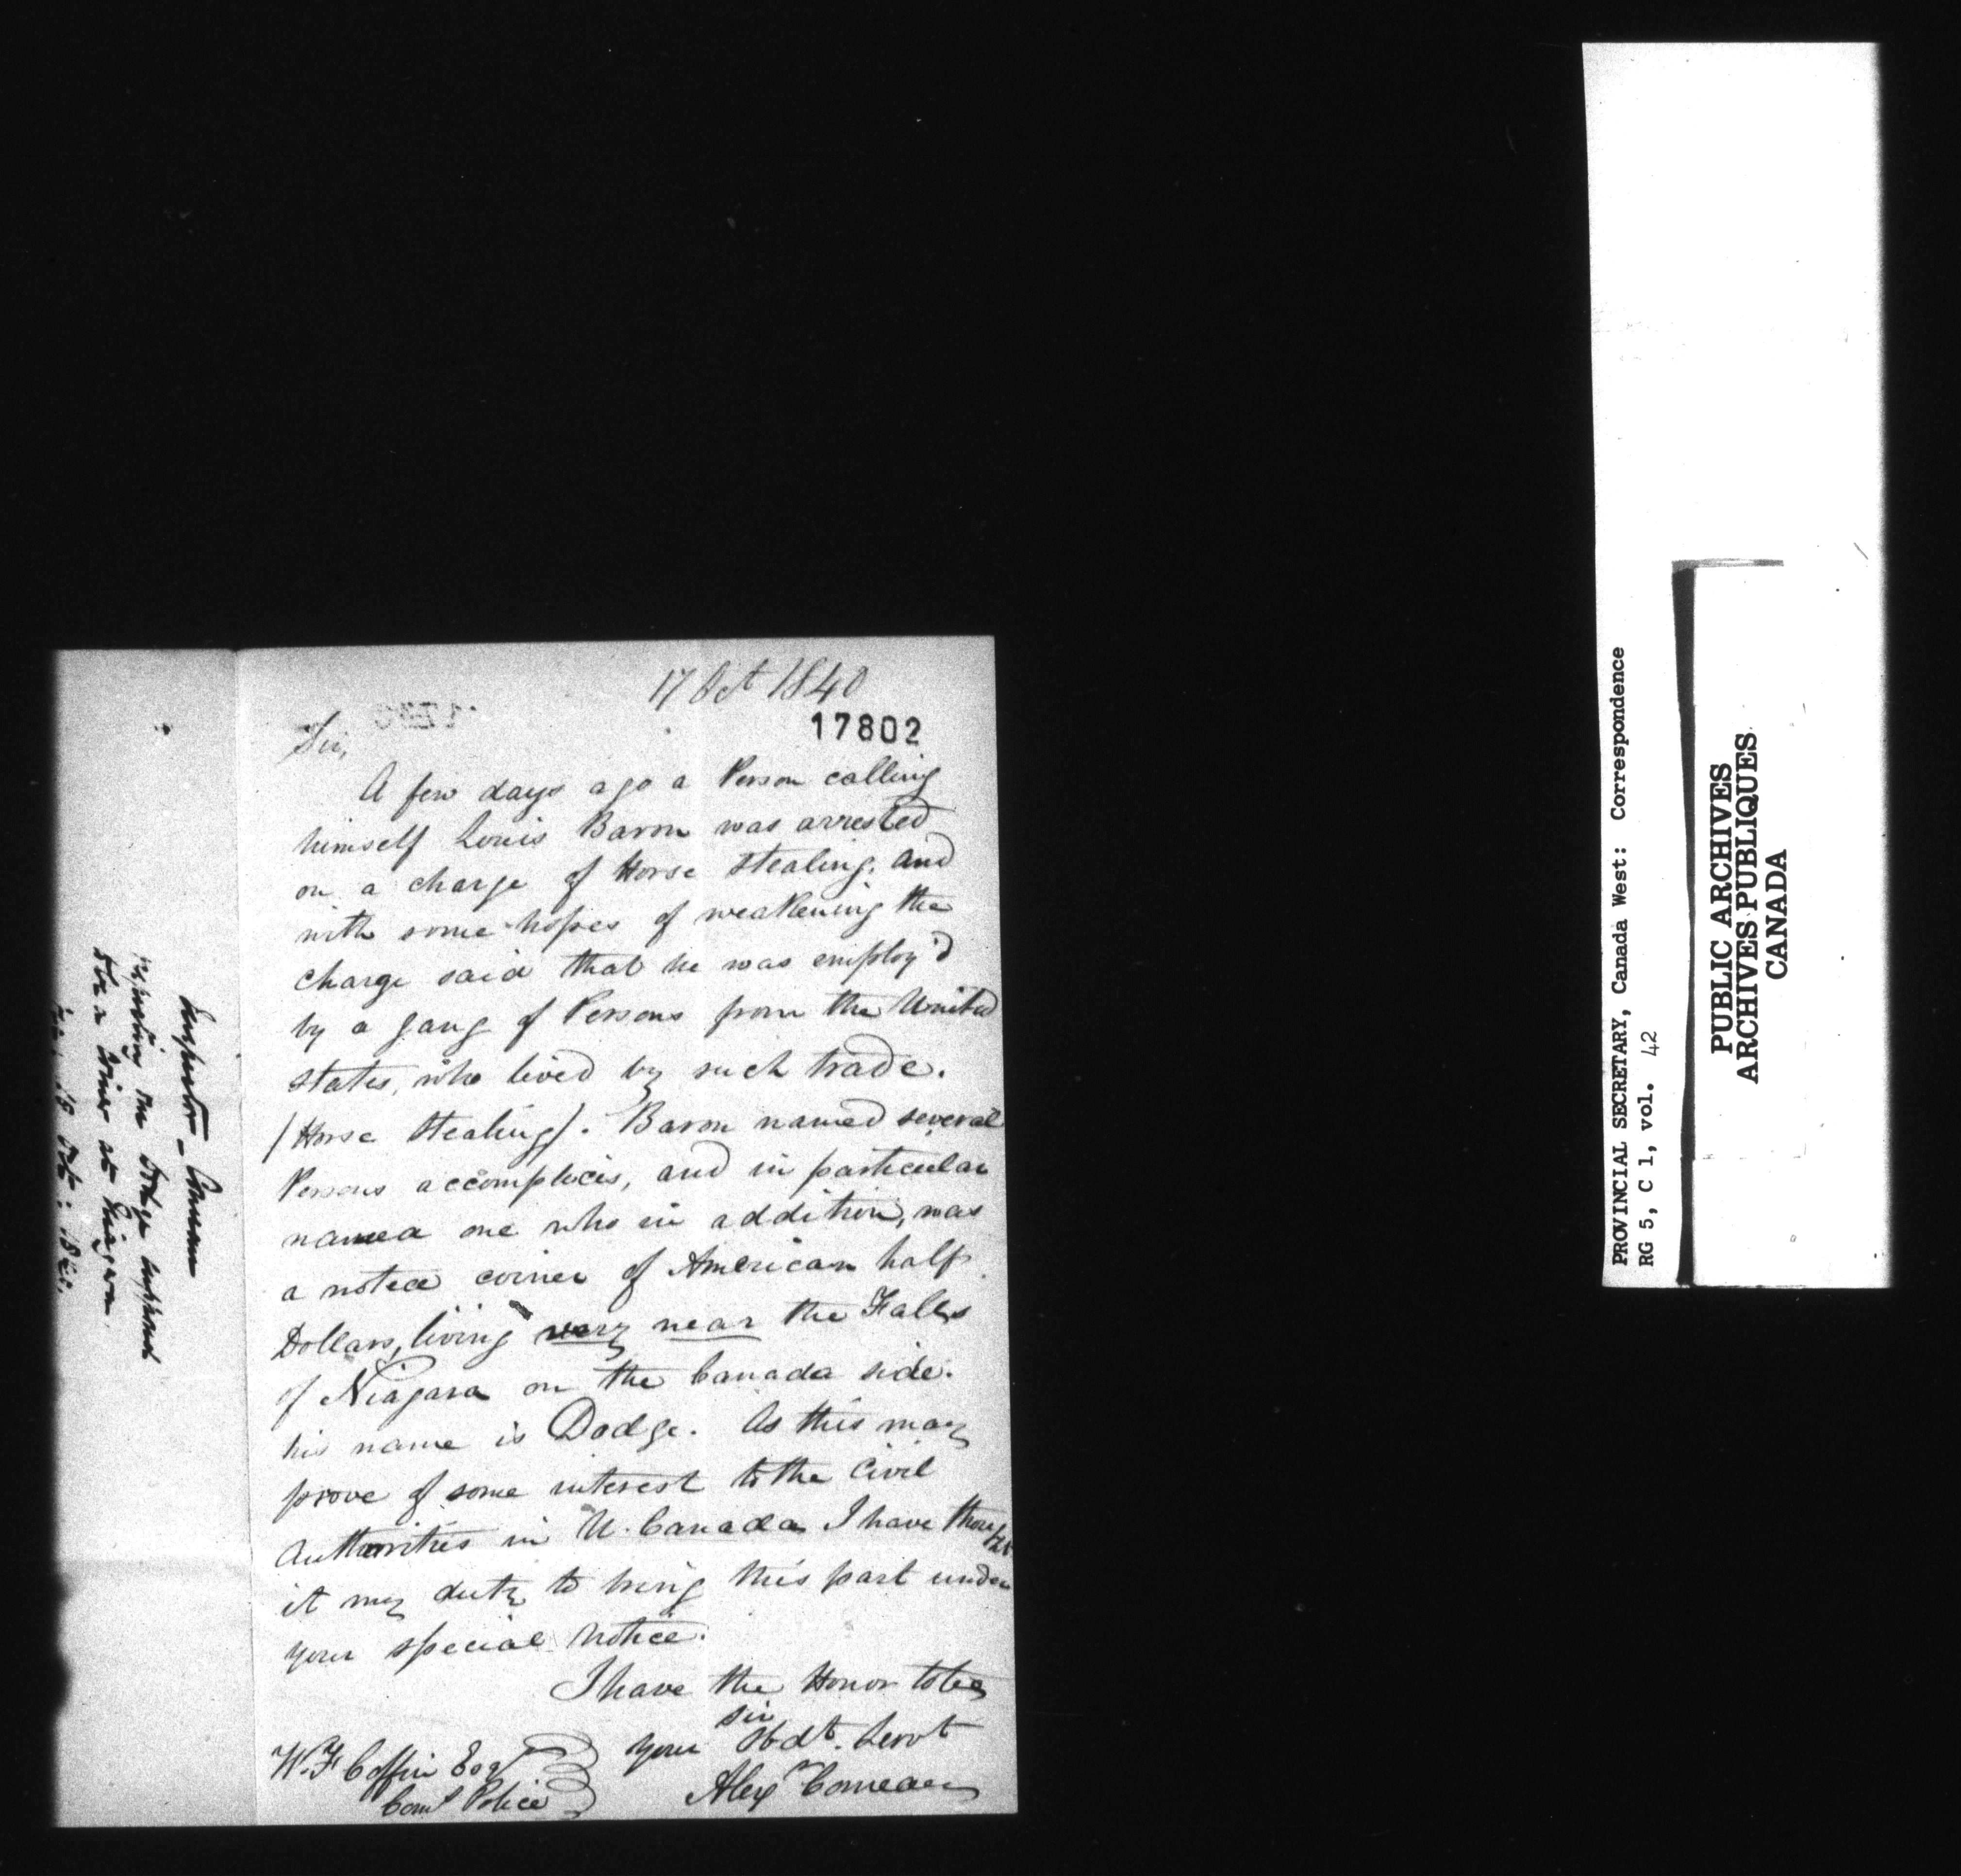 17 Oct 1840
17802
Sir,
A few days ago a Person calling
himself Louis Baron was arrested
on a charge of Horse Stealing, and
with some hopes of weakening the
charge said that he was employ'd
by a gang of Persons from the United
States, who lived by such trade.
/Horse Stealing/. Baron named several
Persons accomplices, and in particular
named one who in addition, was
a noted coiner of American half
Dollars, living very near the Falls
of Niagara on the Canada side.
his name is Dodge. As this may
prove of some interest to the Civil
Authorities in U. Canada I have thought
it my duty to bring this part under
your special notice.
I have the Honor to be
Sir
your Obdt. Servt
Alexr Comeau
W. F. Coffin Esqr
Comr Police
Inspector Comeau
reporting one Dodge supposed
to be a Coiner at Niagara
18 Oct: 1840.
PROVINCIAL SECRETARY, Canada West: Correspondence
RG 5, C 1, vol. 42
PUBLIC ARCHIVES
ARCHIVES PUBLIQUES
CANADA